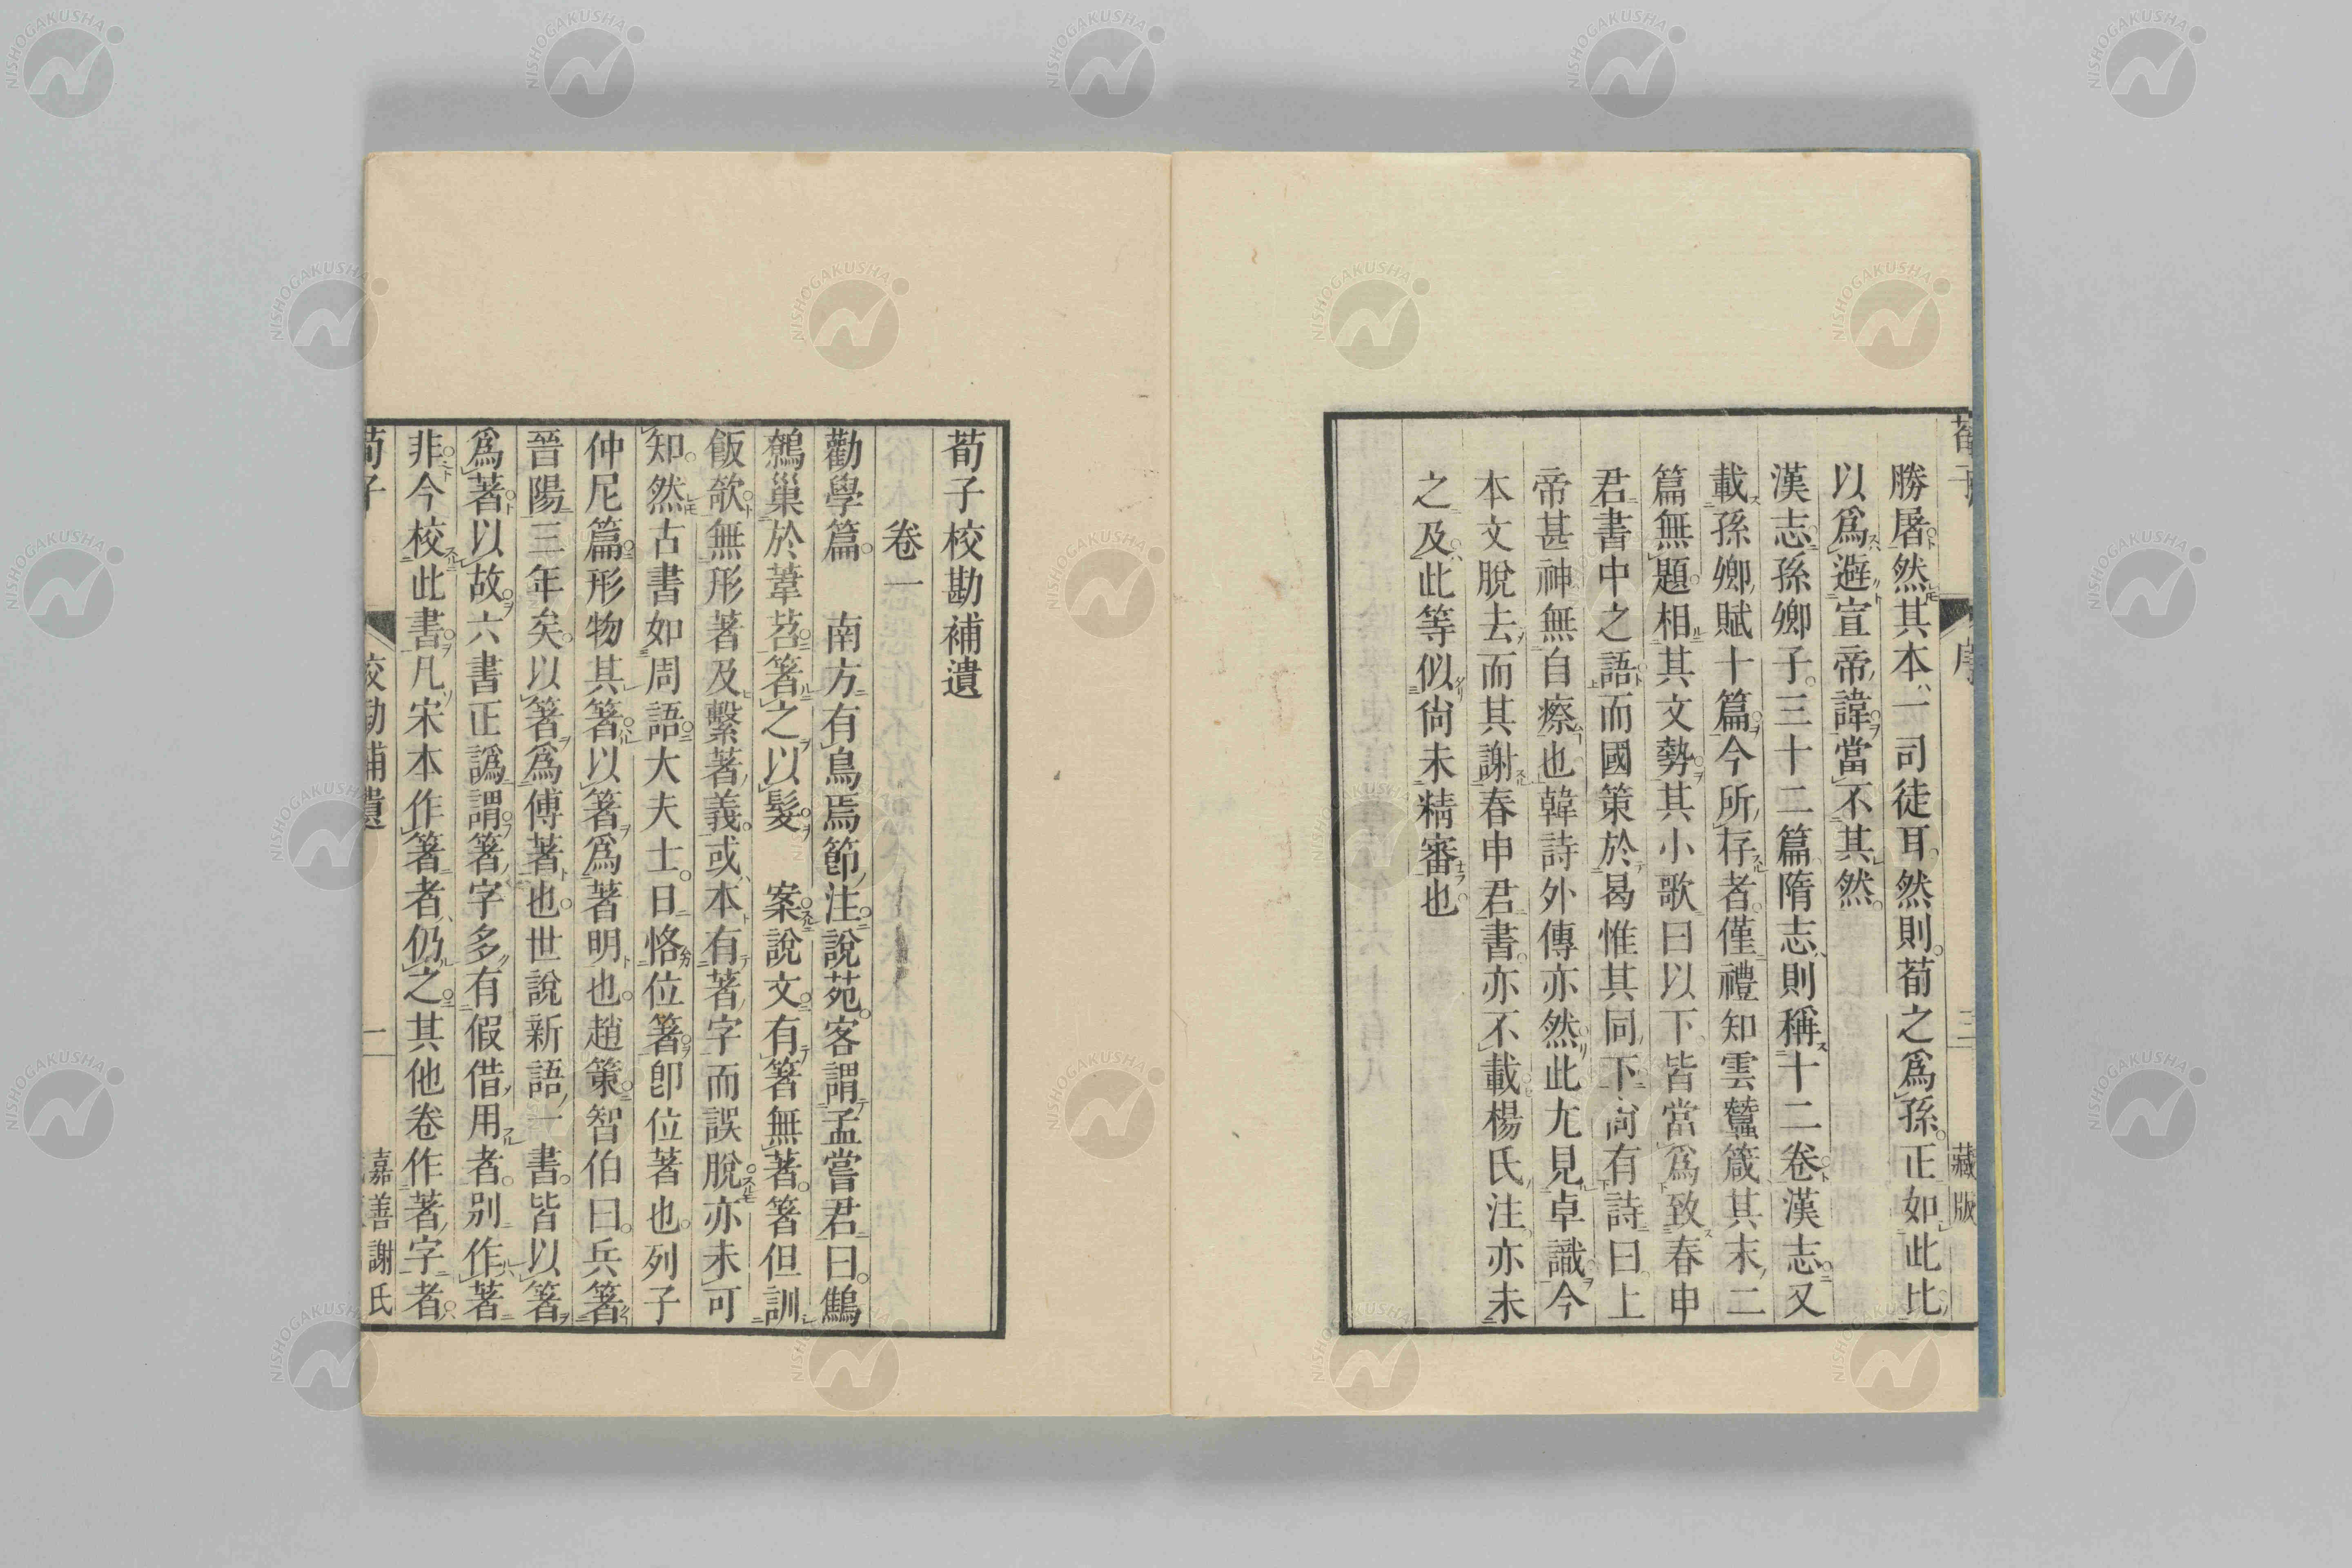 勝屠然其本一司徒耳然則荀之爲孫正如此比
以爲避宣帝諱當不其然
漢志孫卿子三十二篇隋志則稱十二卷漢志又
載孫卿賦十篇今所存者僅禮知雲蠶箴其末二
篇無題相其文勢其小歌曰以下皆當爲致春申
君書中之語而國策於曷惟其同下尙有詩曰上
帝甚神無自瘵也韓詩外傳亦然此尤見卓識今
本文脫去而其謝春申君書亦不載楊氏注亦未
之及此等似尙未精審也
三
藏版
荀子校勘補遺
卷一
勸學篇 南方有鳥焉節注說苑客謂孟嘗君曰鷦
鷯巢於葦苕箸之以髮 案說文有箸無著箸但訓
飯欹無形著及繫著義或本有著字而誤脫亦未可
知然古書如周語大夫士曰恪位箸卽位著也列子
仲尼篇形物其箸以箸爲著明也趙策智伯曰兵箸
晉陽三年矣以箸爲傅著也世說新語一書皆以箸
爲著以故六書正譌謂箸字多有假借用者别作著
非今校此書凡宋本作箸者仍之其他卷作著字者
荀子
校勘補遺
一
嘉善謝氏
NISHOGAKUSHA